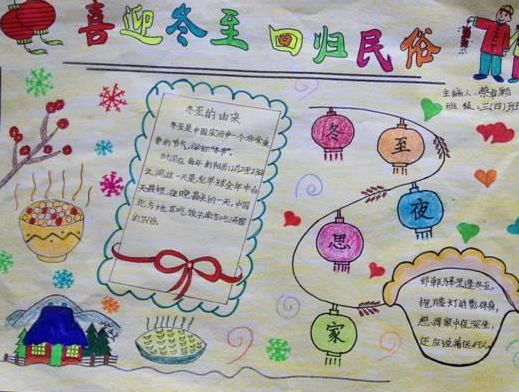 喜迎冬至 回归民俗
主编人:蔡
班级:三(四)班
冬至的由来
冬至是中国农历中一个非常重
要的节气,俗称"冬节"。
时间在每年的阳历12月21至23日
之间,这一天是北半球全年中白
天最短、夜晚最长的一天,中国
北方地区吃饺子南方吃汤圆
的习俗。
冬
至
夜
思
家
邯郸驿里逢冬至,
抱膝灯前影伴身,
想得家中夜深坐,
还应说着远行人。